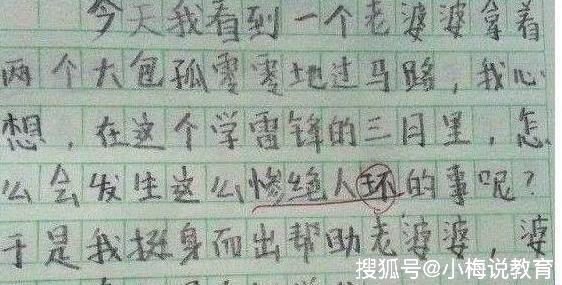 今天我看到一个老婆婆拿着
两个大包孤零零地过马路，我心
想，在这个学雷锋的三月里，怎
么会发生这么惨绝人环的事呢？
于是我挺身而出帮助老婆婆，婆
搜狐号@小梅说教育